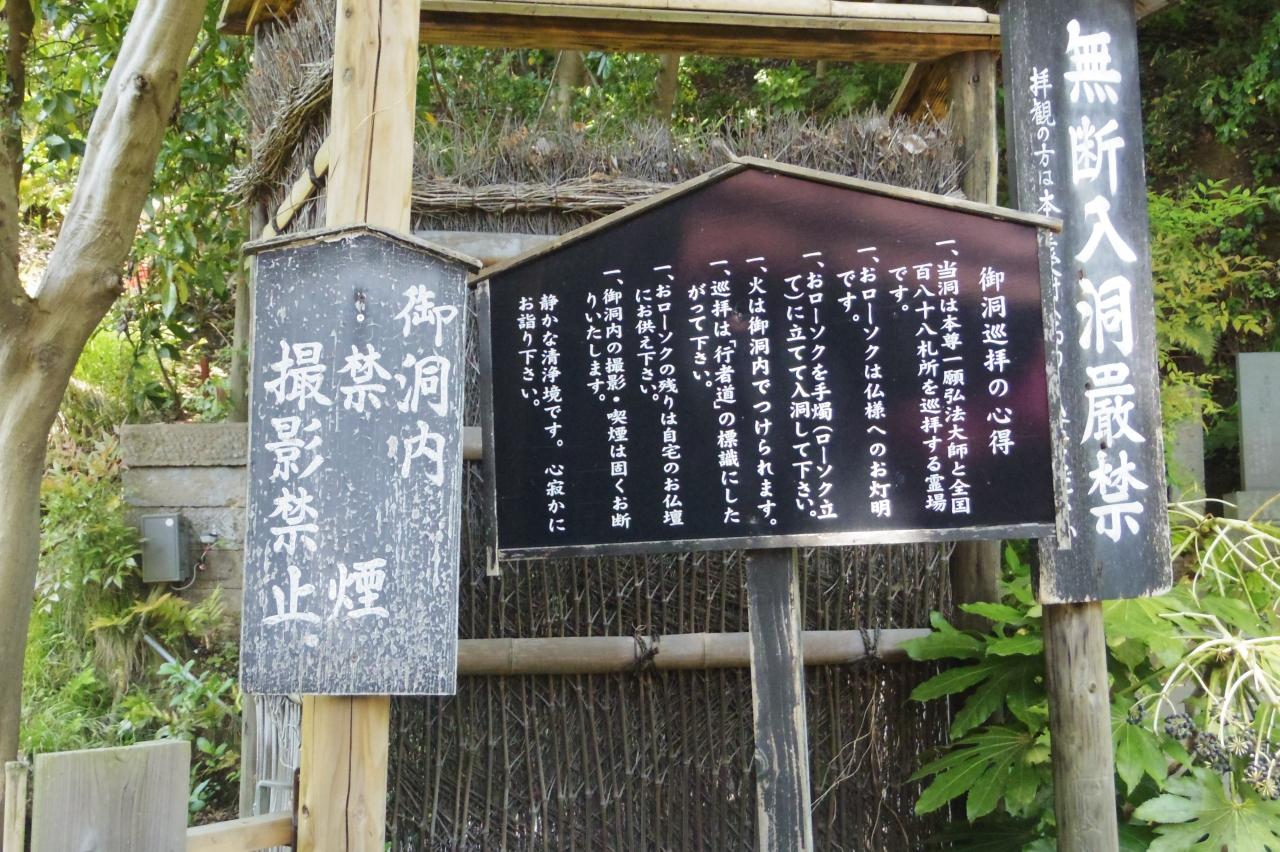 無断入洞厳禁
拝観の方は本
御洞巡拝の心得
一、当洞は本尊一願弘法大師と全国
百八十八札所を巡拝する霊場
です。
一、おローソクは仏様へのお灯明
です。
一、おローソクを手燭(ローソク立
て)に立てて入洞して下さい。
一、火は御洞内でつけられます。
一、巡拝は「行者道」の標識にした
がって下さい。
一、おローソクの残りは自宅のお仏壇
にお供え下さい。
一、御洞内の撮影・喫煙は固くお断
りいたします。
静かな清浄境です。心寂かに
お詣り下さい。
御洞内
禁煙
撮影禁止